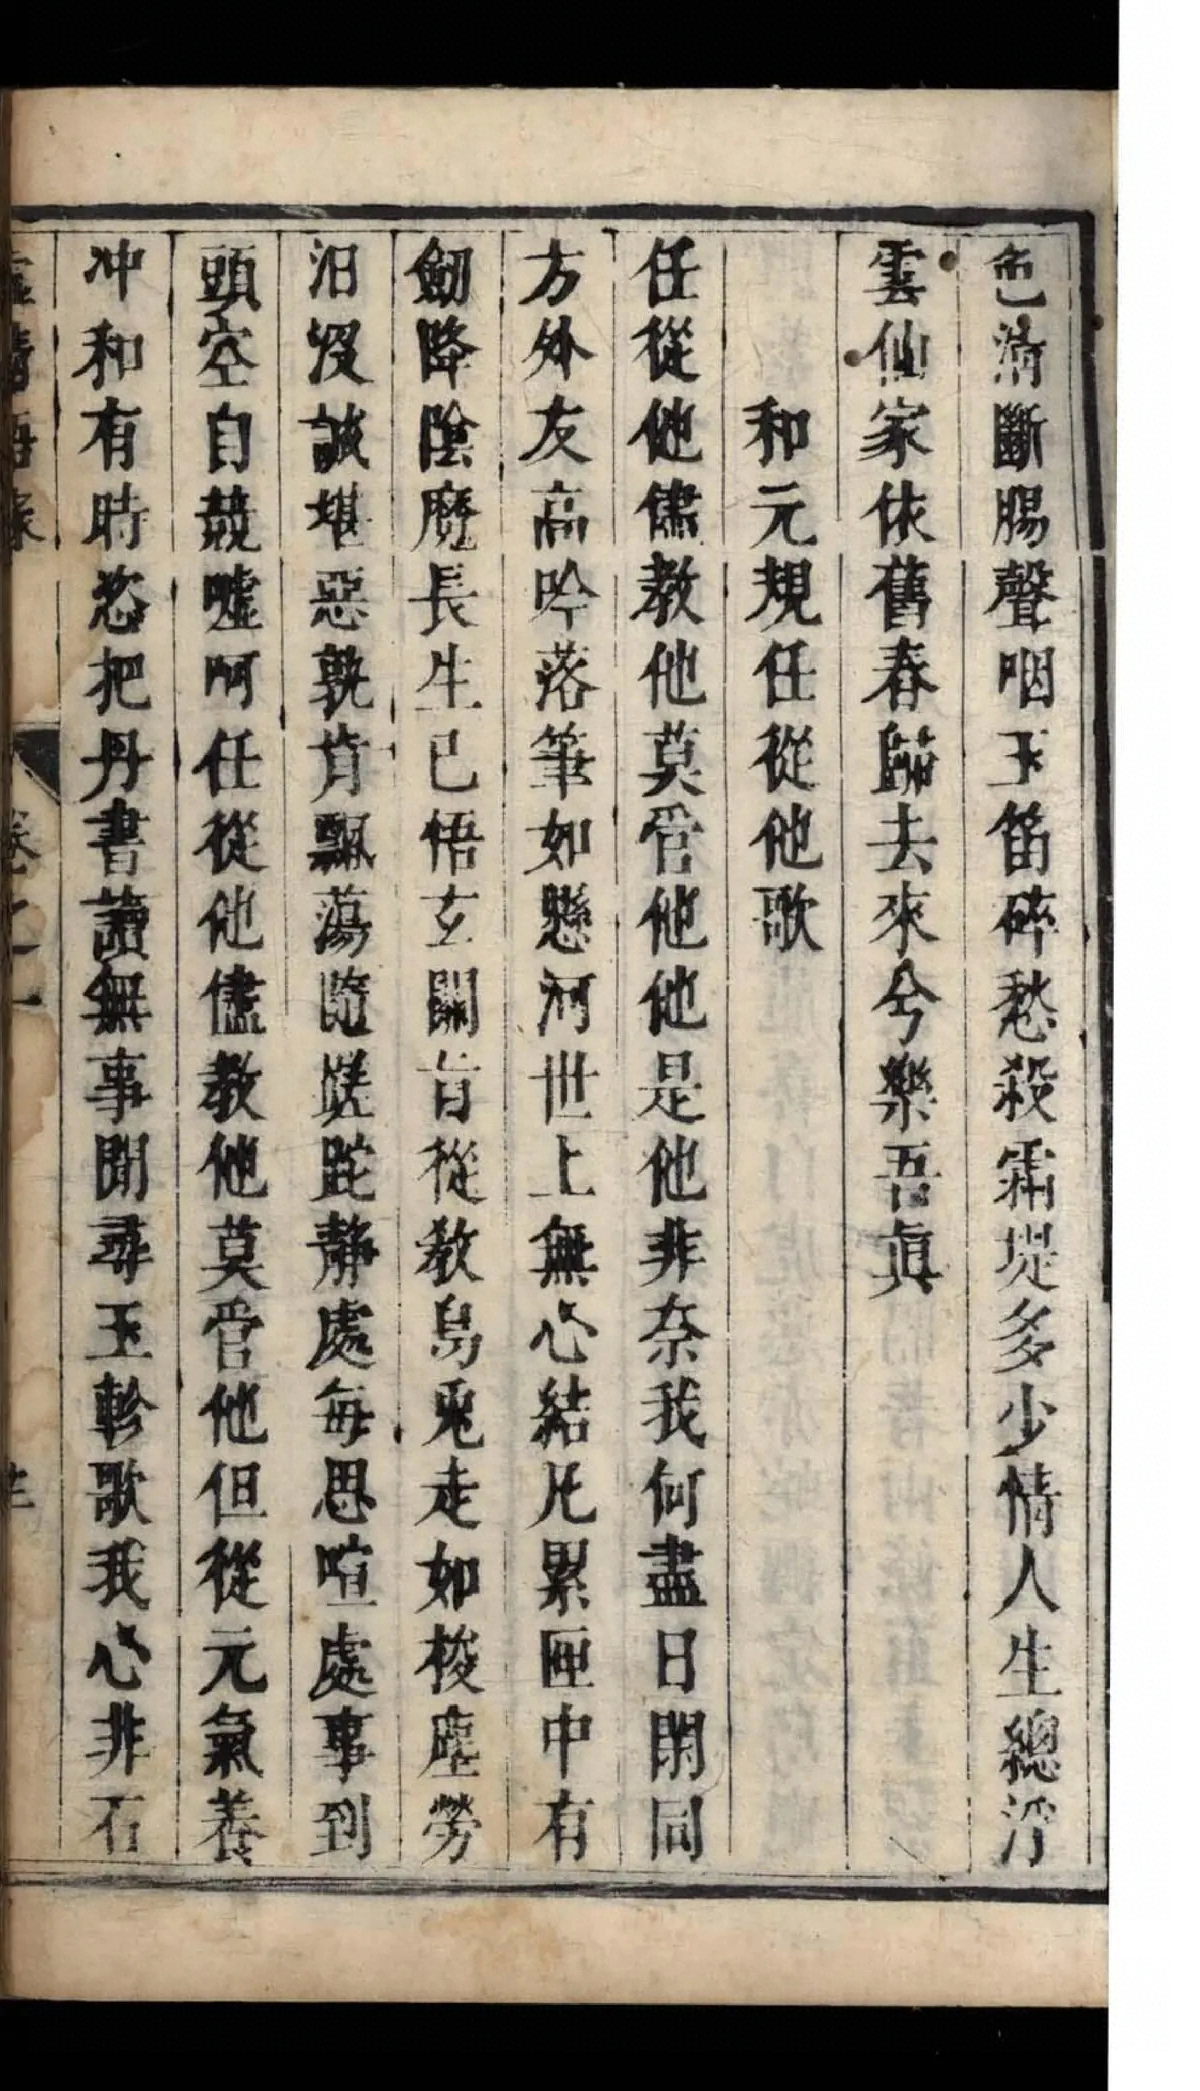 色濟斷腸聲咽玉笛碎愁殺霜堤多少情人生總浮
雲仙家依舊春歸去來兮樂吾眞
和元規任從他歌
任從他儘教他莫管他他是他非奈我何盡日閑同
方外友高吟落筆如懸河世上無心結凡累匣中有
劒降陰魔長生已悟玄關肯從教烏兎走如梭塵勞
汨沒誠堪惡孰肯飄蕩隨蹉跎靜處每思喧處事到
頭空自競噓呵任從他儘教他莫管他但從元氣養
冲和有時恣把丹書讀無事閒尋玉軫歌我心非石